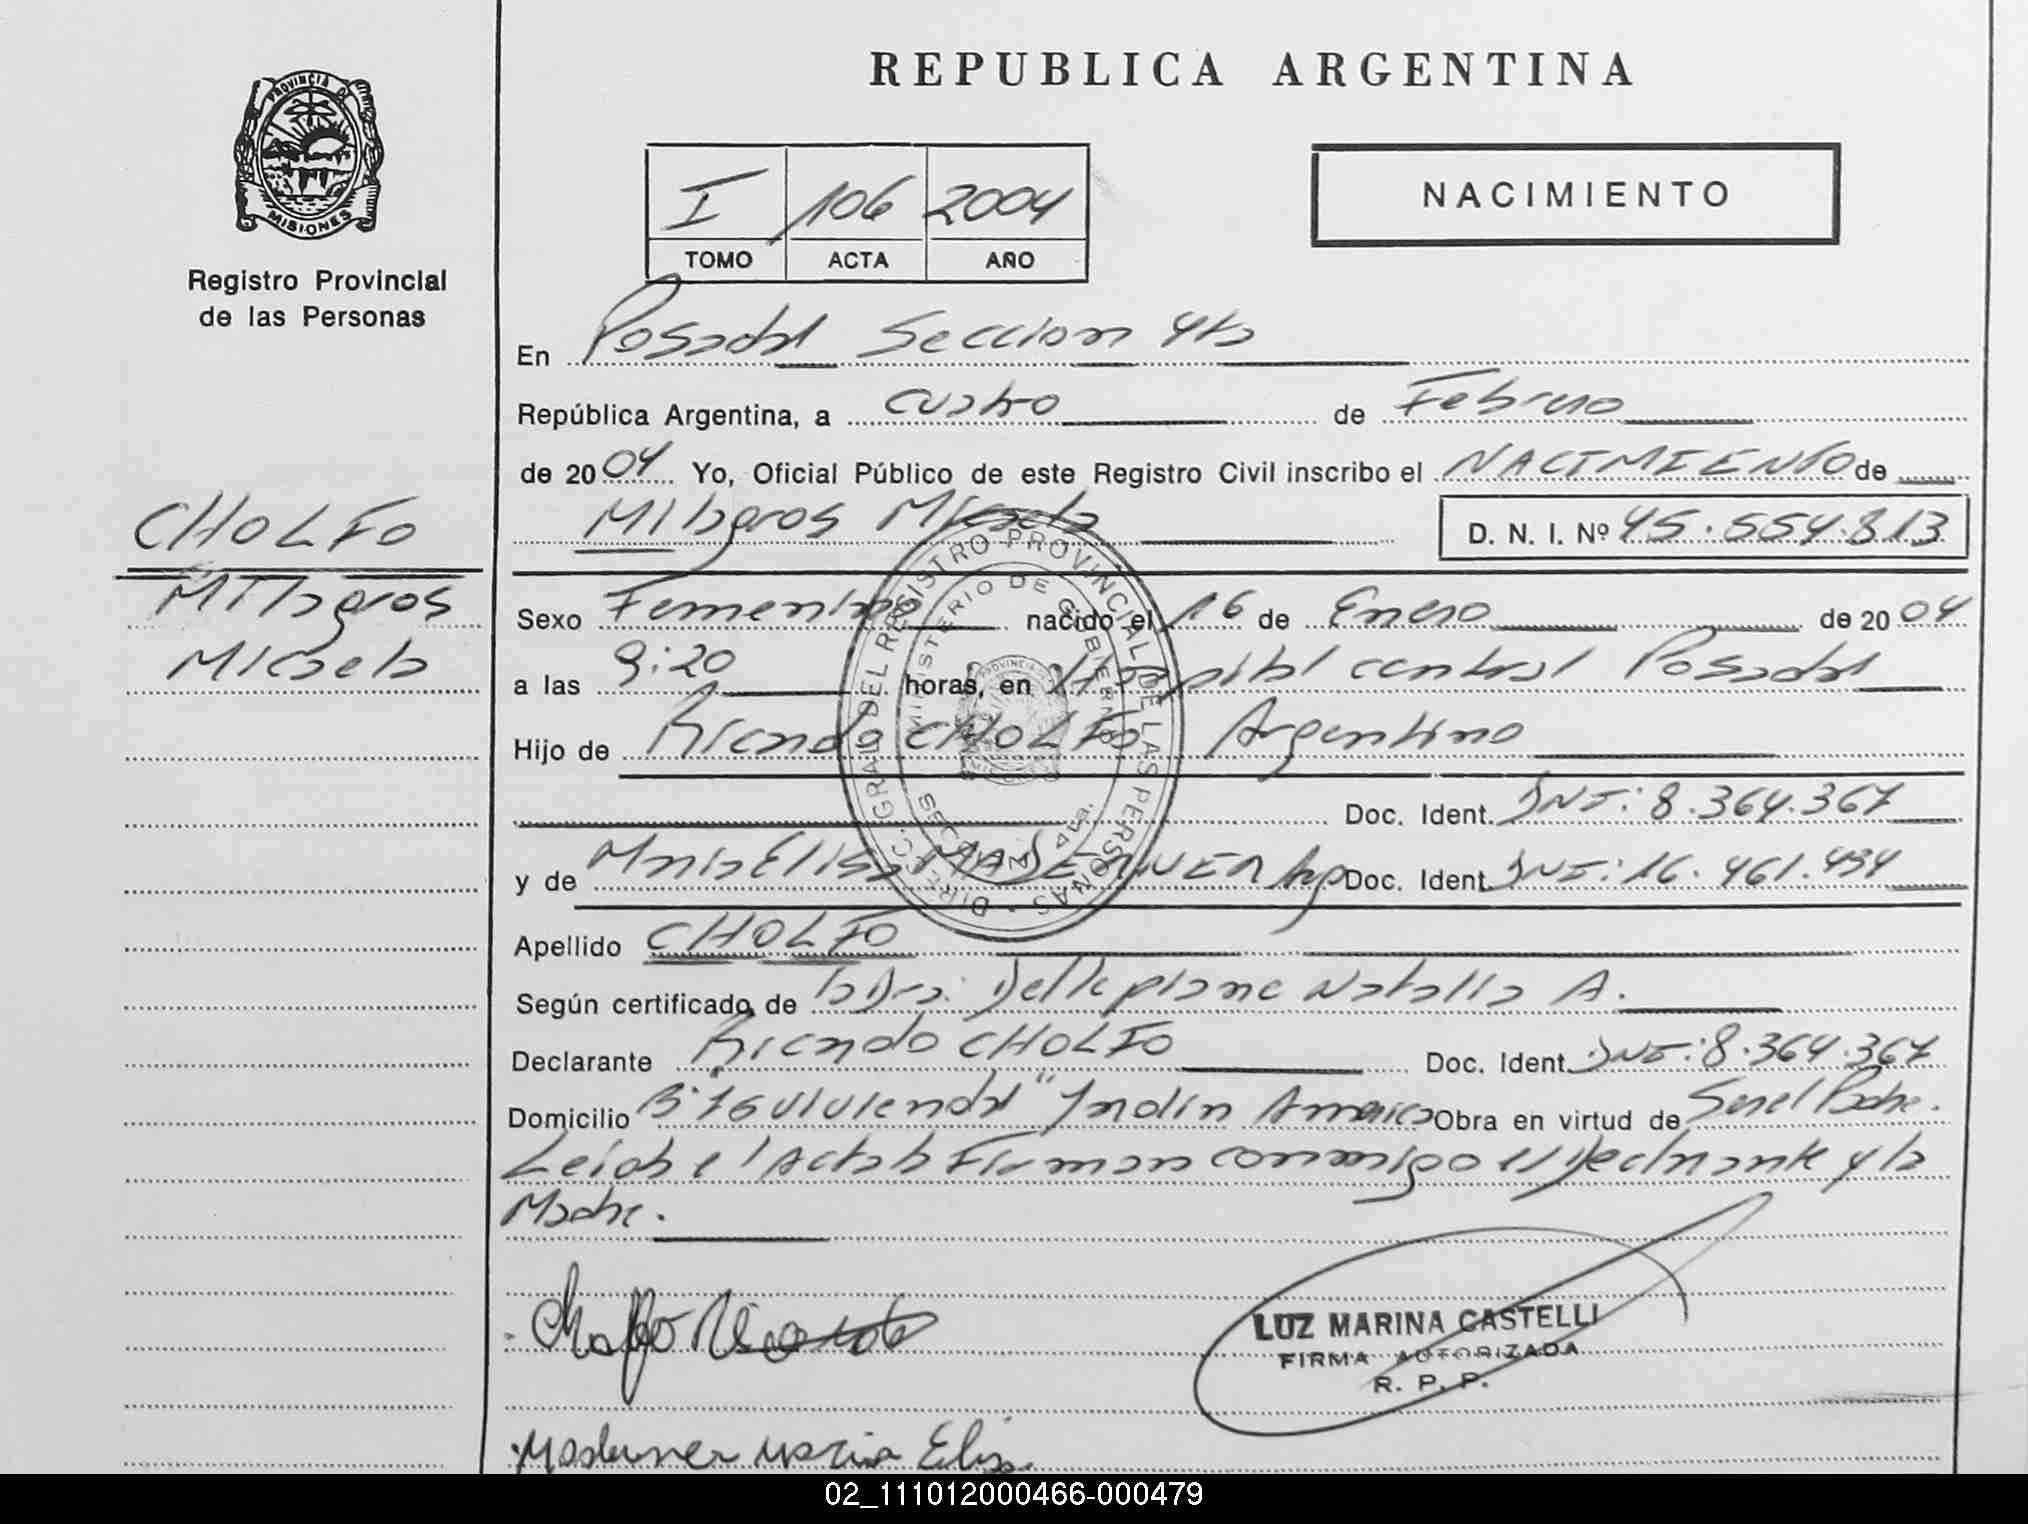 REPUBLICA ARGENTINA
PROVINCIA DE
MISIONES
Registro Provincial
de las Personas
I 106 2004
TOMO ACTA AÑO
NACIMIENTO
En Posadas Seccion 4ta
República Argentina, a cuatro de Febrero
de 2004 Yo, Oficial Público de este Registro Civil inscribo el NACIMIENTO de
Milagros Micaela D. N. I. Nº 45.554.813
CHOLFO
Milagros
Micaela
Sexo Femenino nacido el 16 de Enero de 2004
a las 9:20 horas, en Hospital central Posadas
Hijo de Ricardo CHOLFO Argentino
Doc. Ident. DNI: 8.364.367
y de Maria Elisa MADERNER Arg Doc. Ident. DNI: 16.461.494
Apellido CHOLFO
Según certificado de la Dra. Dellepiane Natalia A.
Declarante Ricardo CHOLFO Doc. Ident. DNI: 8.364.367
Domicilio Bº 76 viviendas "Jardin America Obra en virtud de Ser el Padre.
Leida el Acta la Firman conmigo el Declarante y la
Madre.
DIREC. GRAL DEL REGISTRO PROVINCIAL DE LAS PERSONAS
MINISTERIO DE GOBIERNO
4ta.
Cholfo Ricardo
LUZ MARINA CASTELLI
FIRMA AUTORIZADA
R. P. P.
Maderner Maria Elisa
02_111012000466-000479